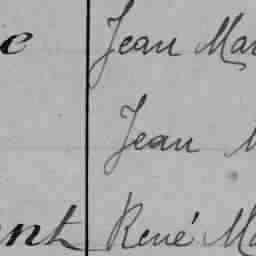 e Jean Mar
Jean M
ent René Ma